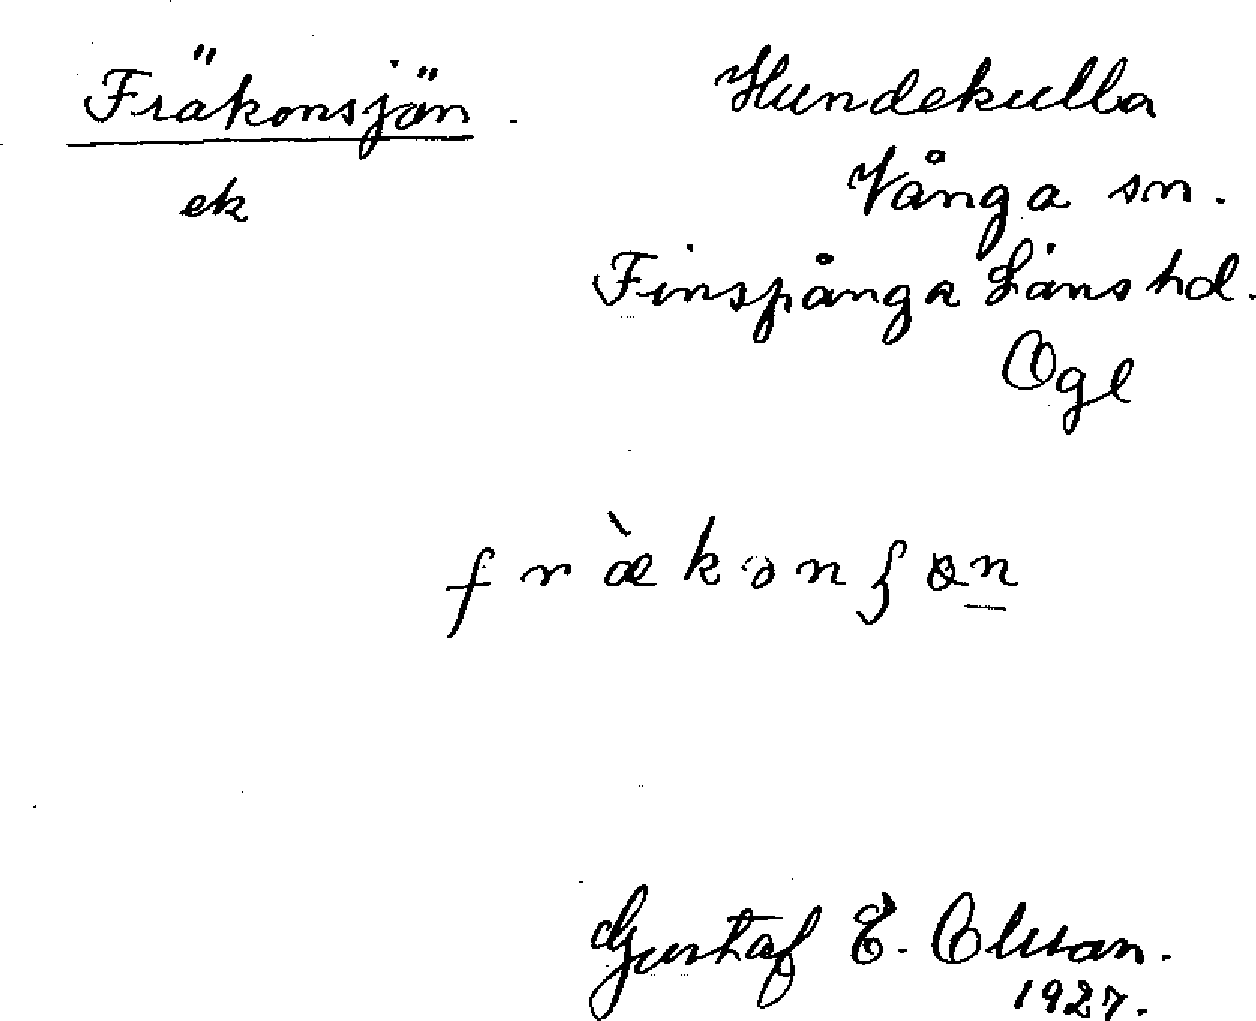 Fräkonsjön.
ek
Hundekulla
Vånga sn.
Finspånga Läns hd.
Ögl
Gustaf E. Olsson.
1927.